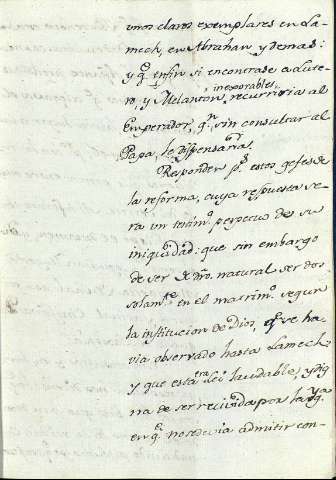 unos claros exemplares en La-
mech, en Abrahan y demas:
y q.e en fin si encontrase a Lute-
ro, y Melanton inexorables, recurriria al
Emperador, q.n sin consultar al
Papa, le dispensaria.
Responder p.s estos gefes de
la reforma, cuya respuesta se-
ra un testim.o perpetuo de su
iniquidad: que sin embargo
de ser de dro. natural ser dos
solam.te en el matrim.o segun
la institucion de Dios, q.e se ha-
via observado hasta Lamech
y que esta era Lei laudable, y dig-
na de ser recivida por la Yg.a
en q.e no se devia admitir con-